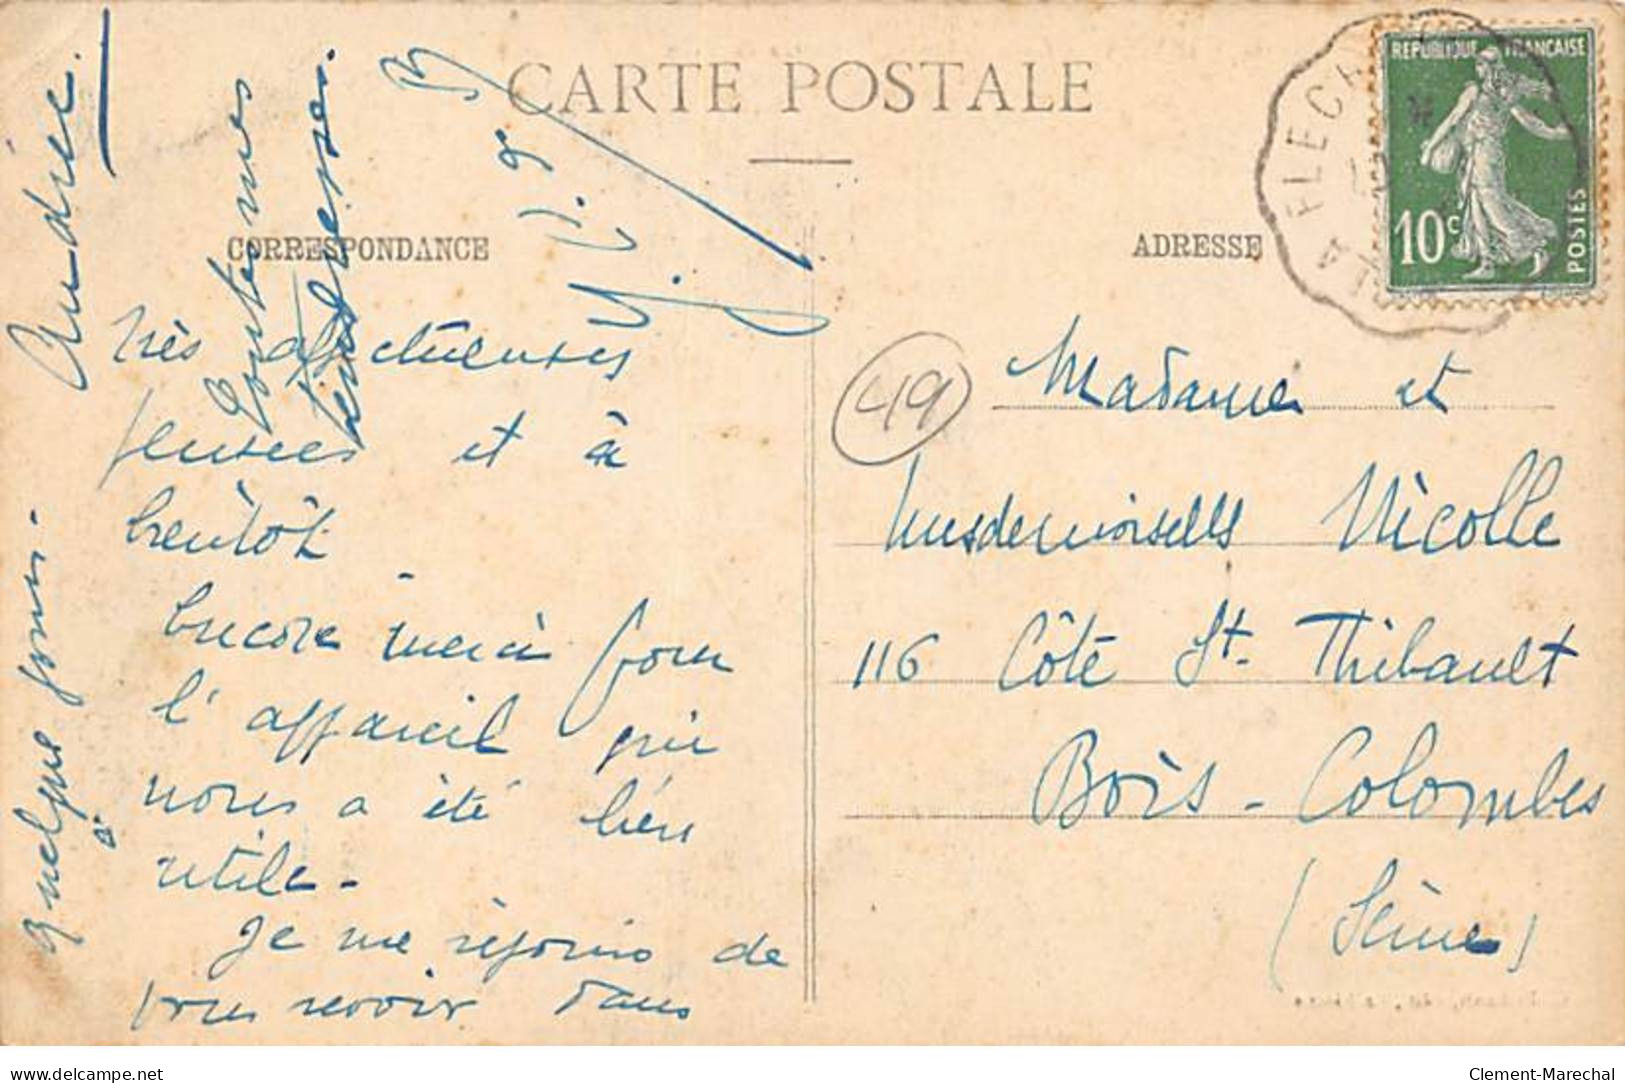 CARTE POSTALE
CORRESPONDANCE
ADRESSE
REPUBLIQUE FRANÇAISE
10c
POSTES
LA FLECHE
Très affectueuses
pensées et à
bientôt
Encore merci pour
l'appareil qui
nous a été bien
utile -
Je me réjouis de
vous revoir dans
quelques jours -
à
Andrée.
Toutes mes
tendresses.
49
Madame et
Mesdemoiselles Nicolle
116 Côte St. Thibault
Bois - Colombes
(Seine)
delcampe.net
Clement-Marechal